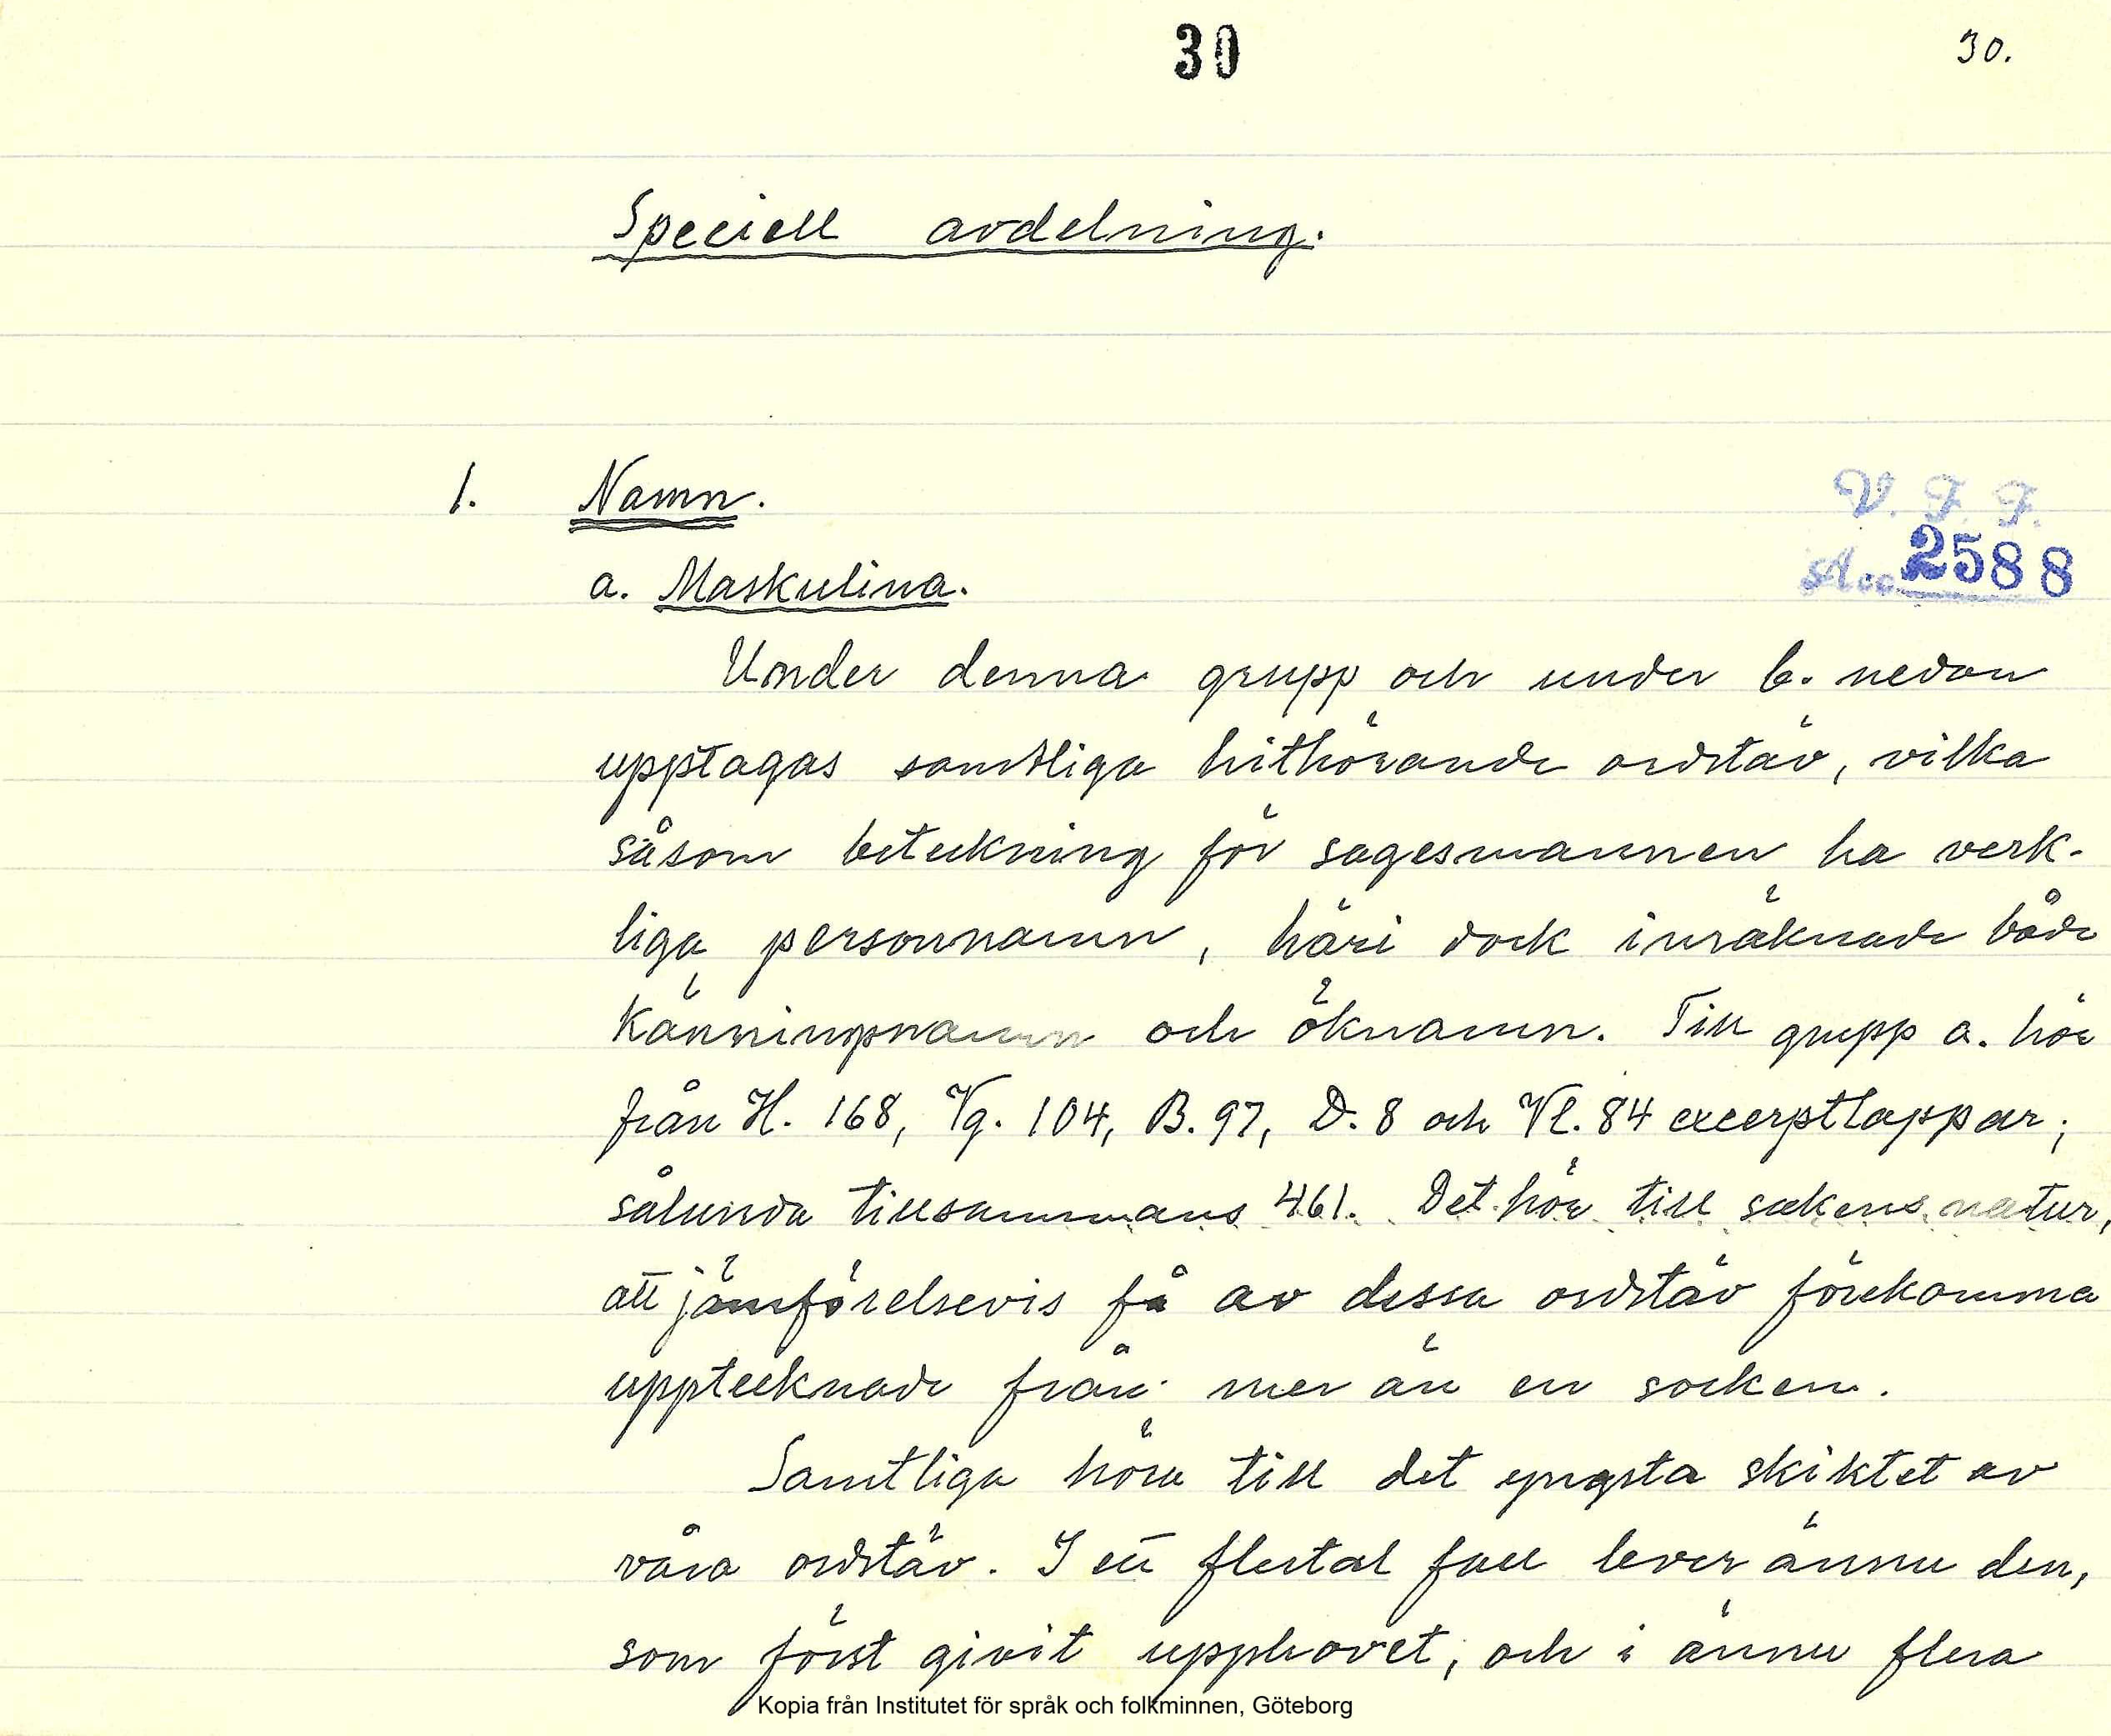 30
30.
Speciell avdelning.
1. Namn.
V. F. F.
Acc. 2588
a. Maskulina.
Under denna grupp och under b. nedan
upptagas samtliga hithörande ordstäv, vilka
såsom beteckning för sagesmannen ha verk-
liga personnamn, häri dock inräknade både
känningsnamn och öknamn. Till grupp a. hör
från H. 168, Vg. 104, B. 97, D. 8 och Vl. 84 excerptlappar;
sålunda tillsammans 461. Det hör till sakens natur,
att jämförelsevis få av dessa ordstäv förekomma
upptecknade från mer än en socken.
Samtliga höra till det yngsta skiktet av
våra ordstäv. I ett flertal fall lever ännu den,
som först givit upphovet, och i ännu flera
Kopia från Institutet för språk och folkminnen, Göteborg